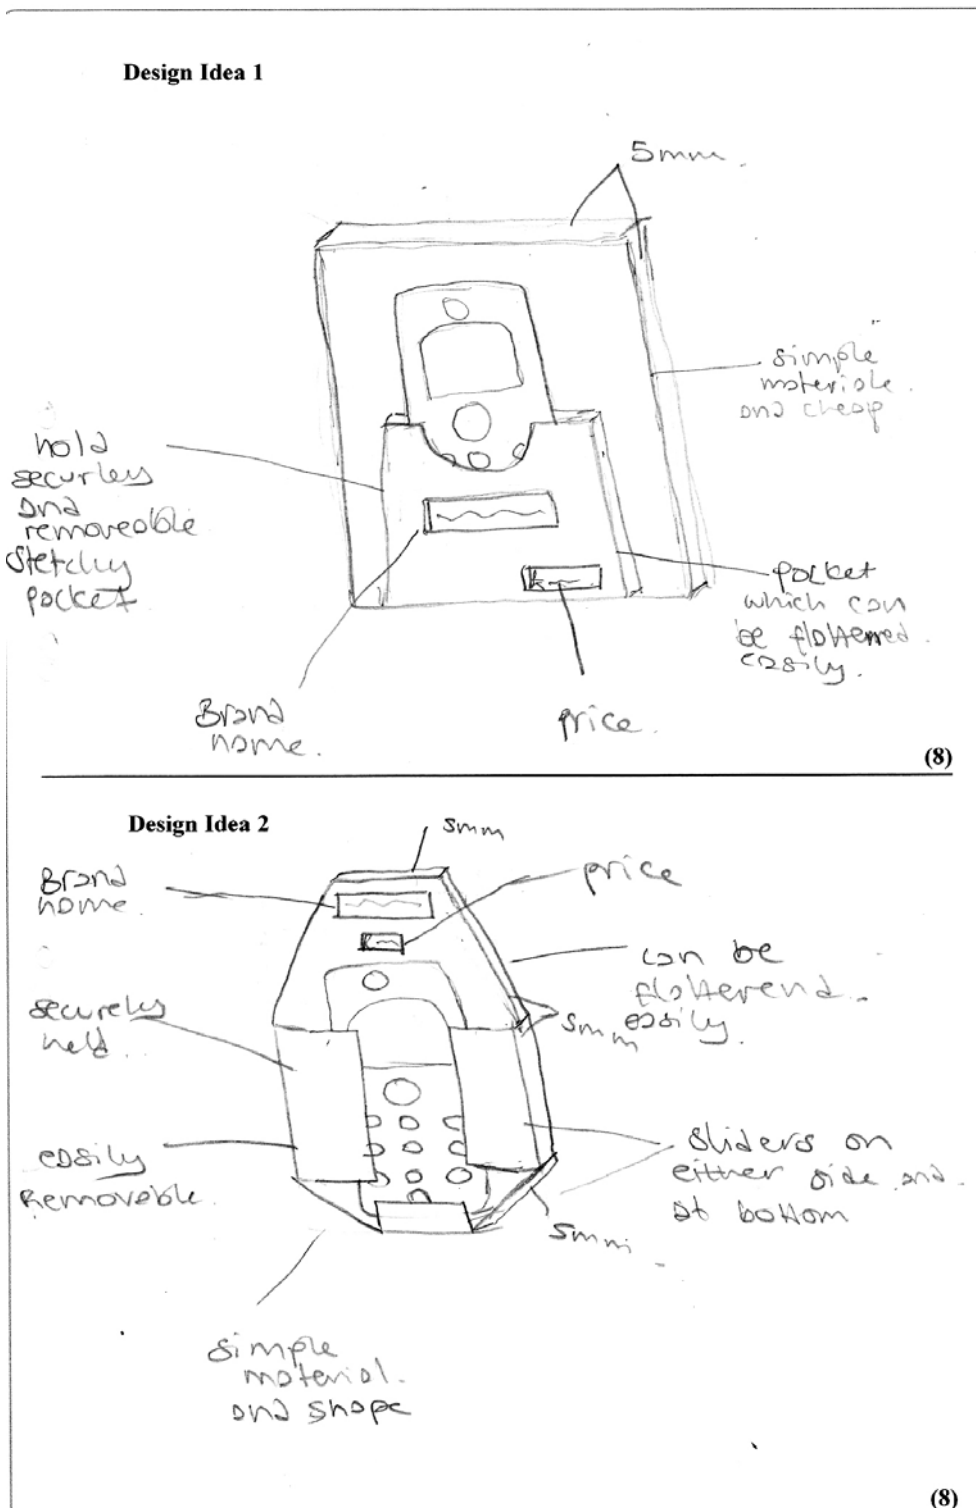 Design Idea 1
5mm.
simple
materials.
and cheap
hold
securley
and
removeable
stetchy
pocket
pocket
which can
be flatterred.
easily.
Brand
name.
price.
(8)
Design Idea 2
5mm
Brand
name.
price
can be
flatterend.
easily.
securely
held.
5mm
easily
Removeable.
sliders on
either side and.
at bottom
5mm.
simple
material.
and shape
(8)